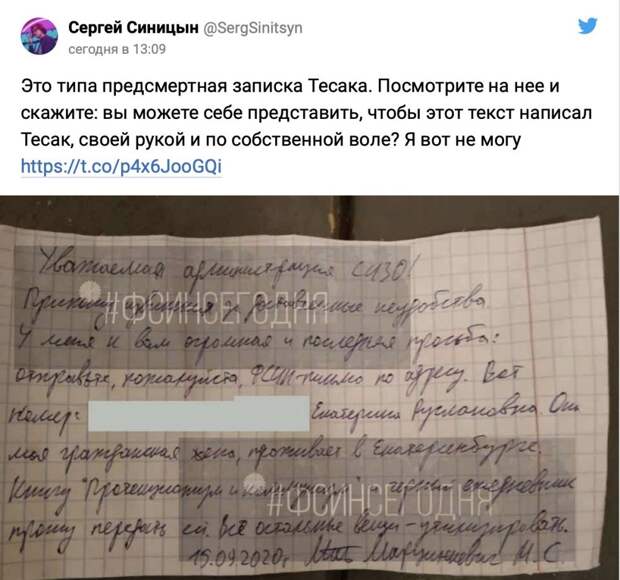 Сергей Синицын @SergSinitsyn
сегодня в 13:09
Это типа предсмертная записка Тесака. Посмотрите на нее и
скажите: вы можете себе представить, чтобы этот текст написал
Тесак, своей рукой и по собственной воле? Я вот не могу
https://t.co/p4x6JooGQi
Уважаемая администрация СИЗО!
Приношу извинения за доставленные неудобства
#ФСИНСЕГОДНЯ
У меня к вам огромная и последняя просьба:
отправьте, пожалуйста, ФСИН-письмо по адресу. Вот
номер: Екатерина Руслановна. Она
моя гражданская жена, проживает в Екатеринбурге.
Книгу "Прочешизм и коммунизм" черный ежедневник
#ФСИНСЕГОДНЯ
прошу передать ей. Все остальные вещи - утилизировать.
15.09.2020г Марцинкевич М.С.